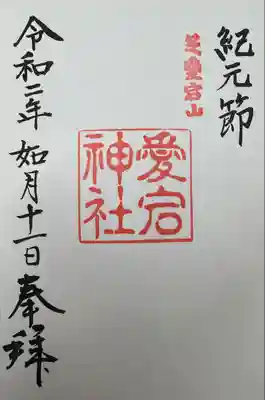 紀元節
芝愛宕山
愛宕
神社
令和二年 如月十一日 奉拝